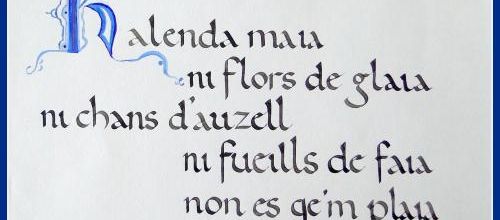 Kalenda maia
ni flors de glaia
ni chans d'auzell
ni fueills de faia
non es qe'm plaia